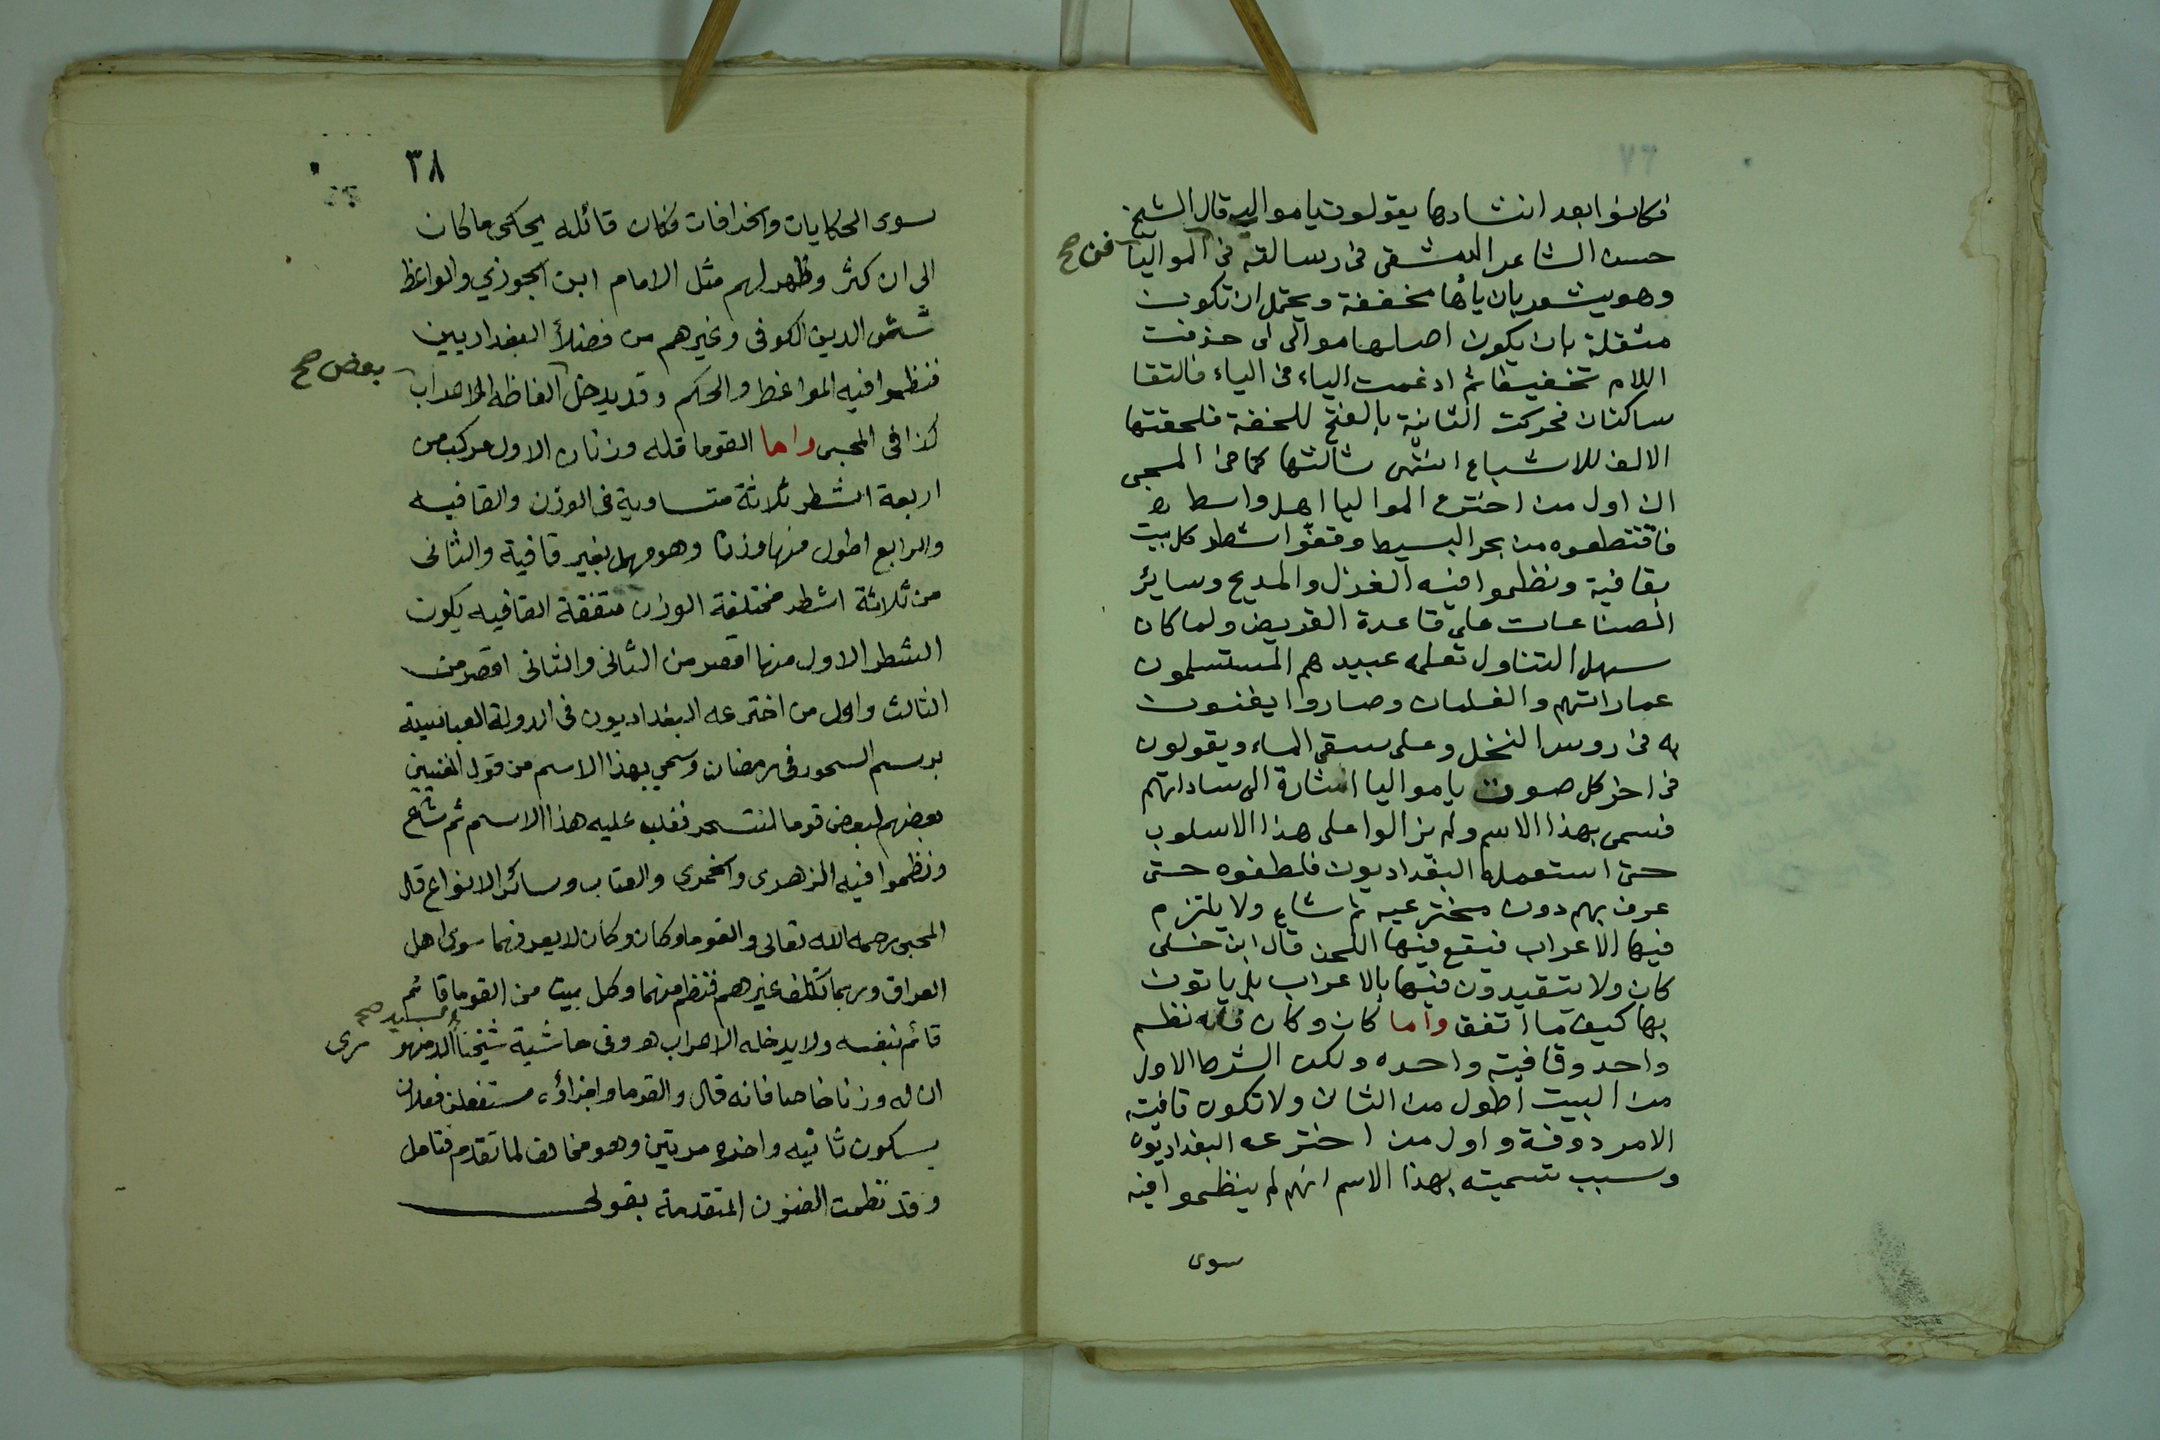 فكانوا بعد انشادها يقولون يا مواليه قال الشيخ
حسن الشاعر الدمشقى فى رسالته فى المواليا
فن صح
وهو يشعر بان ياها مخففة ويحتمل ان تكون
مثقلة بان يكون اصلها موالى لى حذفت
اللام تخفيفا ثم ادغمت الياء فى الياء فالتقا
ساكنان فحركت الثانية بالفتح للخفة فلحقتها
الالف للاشباع انتهى ثالثها كما فى المحبى
ان اول من اخترع المواليا اهل واسط
فاقتطعوه من بحر البسيط وقفوا شطر كل بيت
بقافية ونظموا فيه الغزل والمديح وسائر
الصناعات على قاعدة القريض ولما كان
سهل التناول تعلمه عبيدهم المستسلمون
عماراتهم والغلمان وصاروا يغنون
به فى روس النخل وعلى سقي الماء ويقولون
فى اخر كل صوت يا مواليا اشارة الى ساداتهم
فسمى بهذا الاسم ولم يزالوا على هذا الاسلوب
حتى استعمله البغداديون فلطفوه حتى
عرف بهم دون مخترعيه ثم شاع ولا يلتزم
فيها الاعراب فيقع فيها اللحن قال ابن خلى
كان ولا يتقيدون فيها بالاعراب بل ياتون
بها كيف ما اتفق واما كان وكان فله نظم
واحد وقافية واحده ولكن الشرط الاول
من البيت أطول من الثان ولا تكون قافيته
الا مردوفة واول من اخترعه البغداديون
وسبب تسميته بهذا الاسم انهم لم ينظموا فيه
سوى
٣٨
سوى الحكايات والخرافات فكان قائله يحكى ما كان
الى ان كثر وظهر لهم مثل الامام ابن الجوزي والواعظ
شمس الدين الكوفى وغيرهم من فضلاء البغداديين
فنظموا فيه المواعظ والحكم وقد يدخل الفاظه الاعراب
بعض صح
كذا فى المحبى واما القوما فله وزنان الاول مركب من
اربعة اشطر ثلاثة متساوية فى الوزن والقافيه
والرابع اطول منها وزنا وهو مهمل بغير قافية والثانى
من ثلاثة اشطر مختلفة الوزن متفقة القافيه يكون
الشطر الاول منها اقصر من الثانى والثانى اقصر من
الثالث واول من اخترعه البغداديون فى الدولة العباسية
برسم السحور فى رمضان وسمي بهذا الاسم من قول المغنيين
بعضهم لبعض قوما لنتسحر فغلب عليه هذا الاسم ثم شاع
ونظموا فيه الزهدى والخمرى والعتاب وسائر الانواع قال
المحبى رحمه الله تعالى والقوما وكان وكان لا يعرفهما سوى اهل
العراق وربما تكلف غيرهم فنظم منهما وكل بيت من القوما قائم
قائم بنفسه ولا يدخله الاعراب هو وفى حاشية شيخنا الدمنهو
السيد صح
رى
ان له وزنا خاصا فانه قال والقوما واجزاؤه مستفعلن فعلان
بسكون ثانيه واخره مرتين وهو مخالف لما تقدم فتامل
وقد نظمت الفنون المتقدمة بقولى